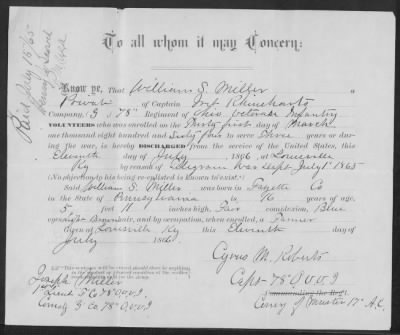 To all whom it may Concern:
Know ye, That William S. Miller a
Private of Captain
Company, G 78th Regiment of Ohio Veteran Infantry
VOLUNTEERS who was enrolled on the Thirty first day of March
one thousand eight hundred and Sixty four to serve Three years or dur-
ing the war, is hereby DISCHARGED from the service of the United States, this
Eleventh day of July 186 , at Louisville
Ky by reason of Telegram War dept July 1st 1865
(No objection to his being re-enlisted is known to exist.)
Said William S. Miller was born in Fayette Co
in the State of Pennsylvania is years of age,
5 feet 11 inches high, Fair complexion, Blue
eyes, hair, and by occupation, when enrolled, a Farmer
Given at Louisville Ky this Eleventh day of
July 186
Cyrus M. Roberts
Capt 78th O.V.V.I
Commanding the Reg't.
Comy of Muster 17" A.C.
Joseph Miller
1st Lieut Co 78th O.V.V.I
Comdg G Co 78th O.V.V.I
Paid July 15/65